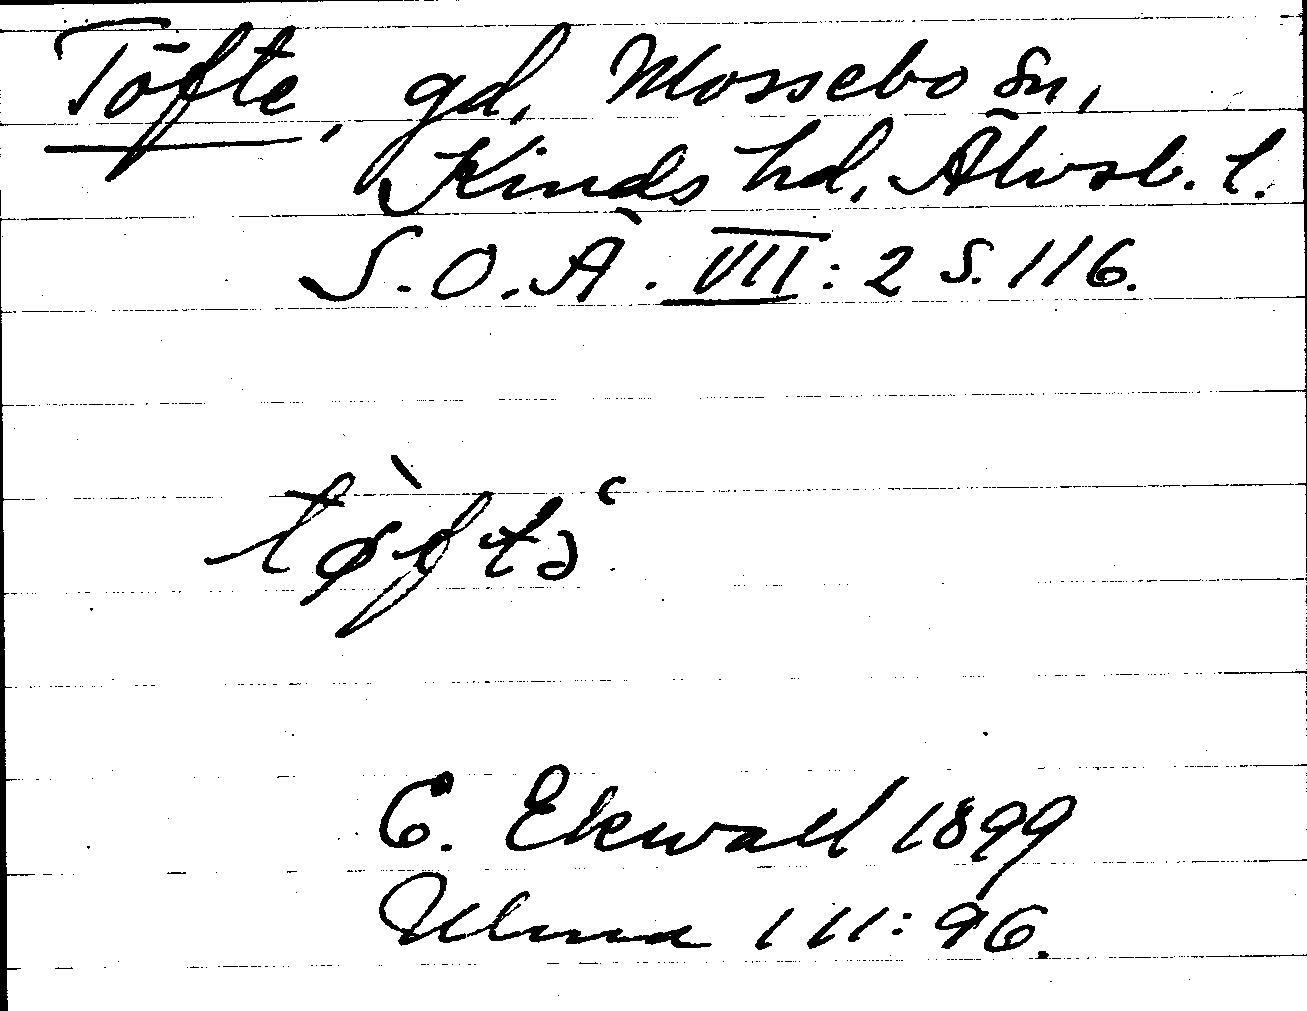 Töfte, gd, Mossebo sn,
Kinds hd, Älvsb. l.
S.O.Ä. VII: 2 S. 116.
tø̀ftə
E. Ekwall 1899
Ulma 111:96.